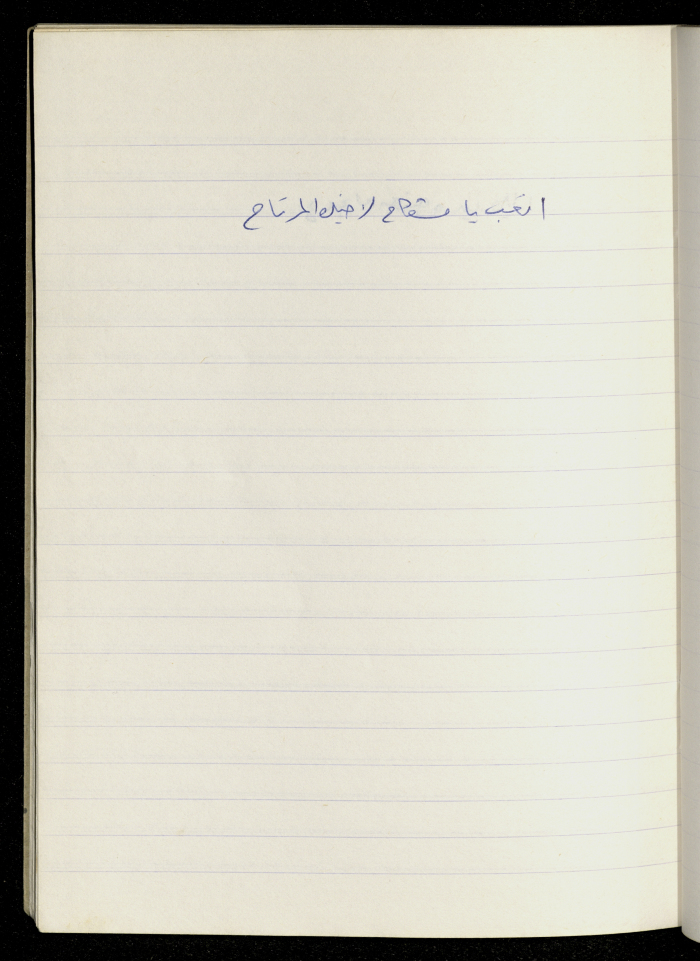 اتعب يا مشكاح لاخيك المرتاح